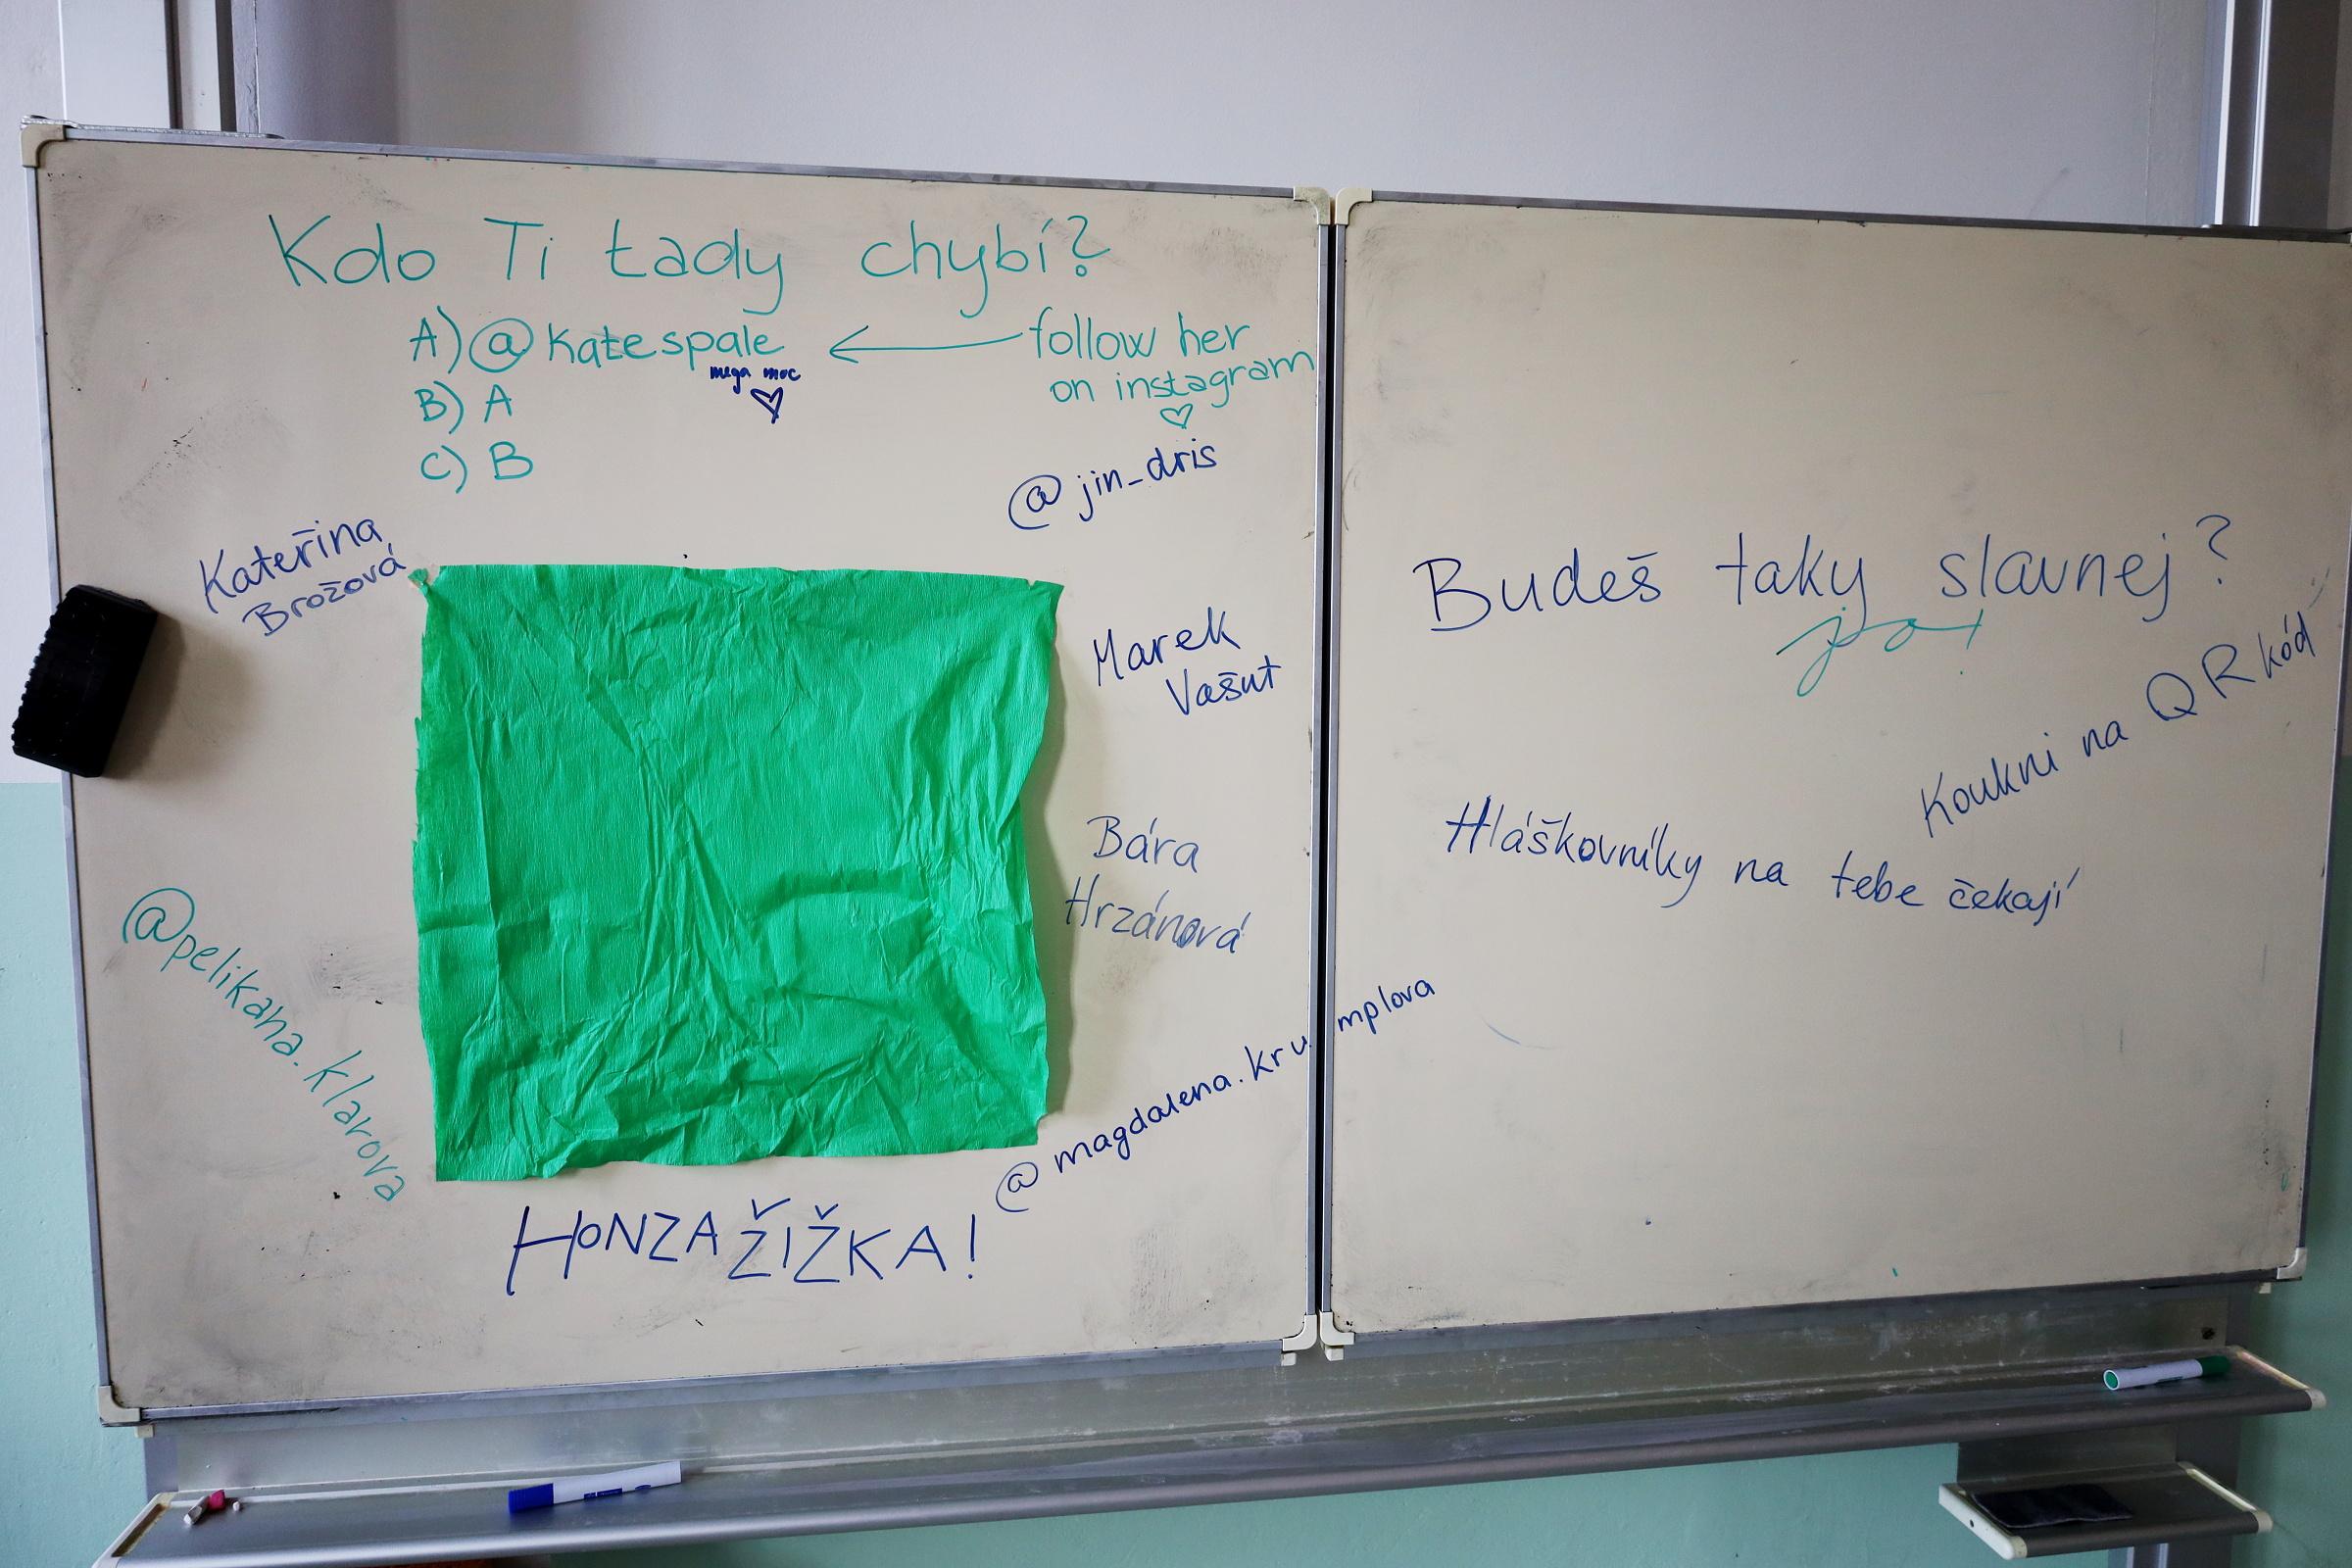 Kdo Ti tady chybí?
A) @katespale ← follow her
on instagram
mega moc
B) A
C) B
@jin_dris
Kateřina
Brožová
Marek
Vašut
Bára
Hrzánová
@pelikana.klarova
@magdalena.krumplova
HONZA ŽIŽKA!
Budeš taky slavnej?
jo!
Koukni na QR kód
Hláškovníky na tebe čekají